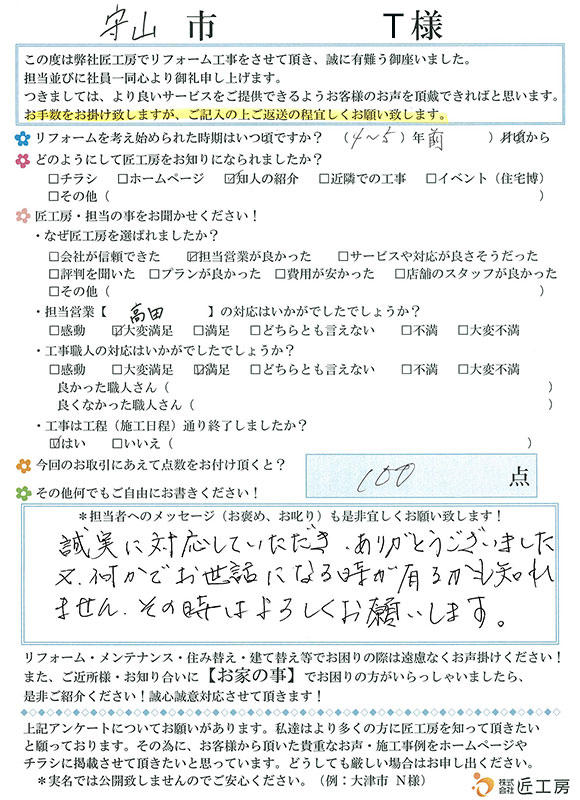 守山 市 T様
この度は弊社匠工房でリフォーム工事をさせて頂き、誠に有難う御座いました。
担当並びに社員一同心より御礼申し上げます。
つきましては、より良いサービスをご提供できるようお客様のお声を頂戴できればと思います。
お手数をお掛け致しますが、ご記入の上ご返送の程宜しくお願い致します。
リフォームを考え始められた時期はいつ頃ですか？ （4〜5）年前 ）月頃から
どのようにして匠工房をお知りになられましたか？
□チラシ □ホームページ ☑知人の紹介 □近隣での工事 □イベント（住宅博）
□その他（ ）
匠工房・担当の事をお聞かせください！
・なぜ匠工房を選ばれましたか？
□会社が信頼できた ☑担当営業が良かった □サービスや対応が良さそうだった
□評判を聞いた □プランが良かった □費用が安かった □店舗のスタッフが良かった
□その他（ ）
・担当営業【 高田 】の対応はいかがでしたでしょうか？
□感動 ☑大変満足 □満足 □どちらとも言えない □不満 □大変不満
・工事職人の対応はいかがでしたでしょうか？
□感動 □大変満足 ☑満足 □どちらとも言えない □不満 □大変不満
良かった職人さん（ ）
良くなかった職人さん（ ）
・工事は工程（施工日程）通り終了しましたか？
☑はい □いいえ（ ）
今回のお取引にあえて点数をお付け頂くと？ 100 点
その他何でもご自由にお書きください！
＊担当者へのメッセージ（お褒め、お叱り）も是非宜しくお願い致します！
誠実に対応していただき、ありがとうございました
又、何かでお世話になる時が有るかも知れ
ません、その時はよろしくお願いします。
リフォーム・メンテナンス・住み替え・建て替え等でお困りの際は遠慮なくお声掛けください！
また、ご近所様・お知り合いに【お家の事】でお困りの方がいらっしゃいましたら、
是非ご紹介ください！誠心誠意対応させて頂きます！
上記アンケートについてお願いがあります。私達はより多くの方に匠工房を知って頂きたい
と願っております。その為に、お客様から頂いた貴重なお声・施工事例をホームページや
チラシに掲載させて頂きたいと思っています。どうしても厳しい場合はお申し出ください。
＊実名では公開致しませんのでご安心ください。（例：大津市 N様）
株式会社 匠工房